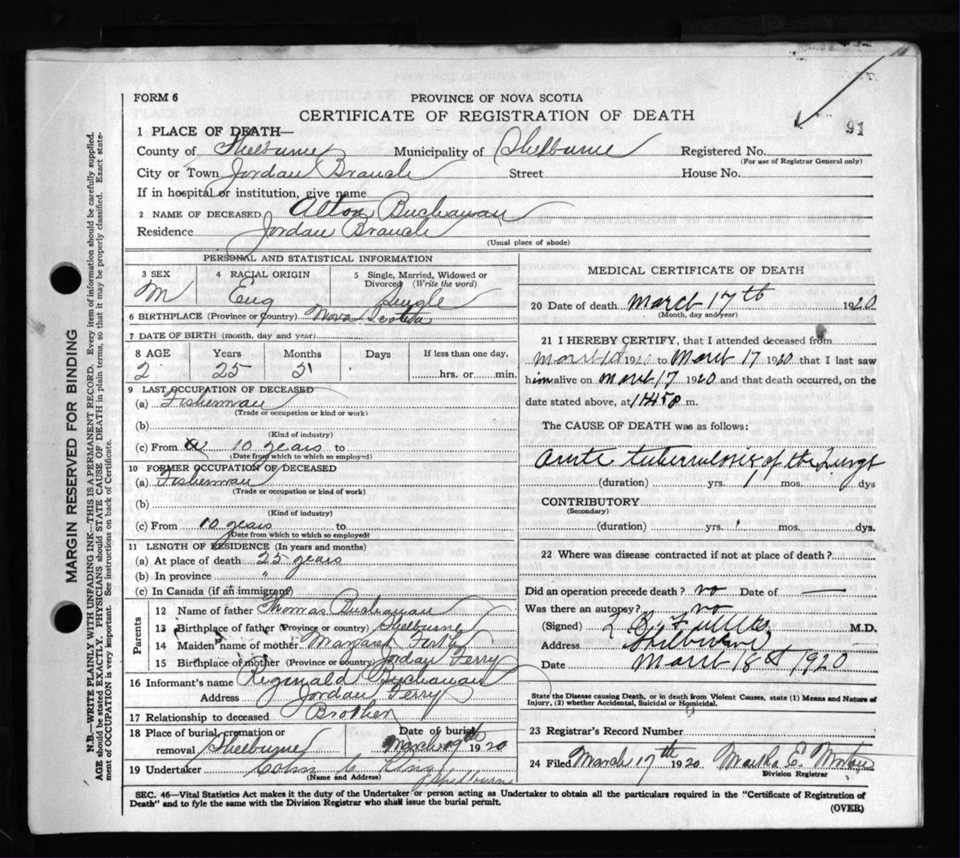 FORM 6
PROVINCE OF NOVA SCOTIA
CERTIFICATE OF REGISTRATION OF DEATH
91
1 PLACE OF DEATH—
County of Shelburne Municipality of Shelburne Registered No.
(For use of Registrar General only)
City or Town Jordan Branch Street House No.
If in hospital or institution, give name
2 NAME OF DECEASED Alton Buchanan
Residence Jordan Branch
(Usual place of abode)
PERSONAL AND STATISTICAL INFORMATION
3 SEX 4 RACIAL ORIGIN 5 Single, Married, Widowed or Divorced (Write the word)
M Eng Single
6 BIRTHPLACE (Province or Country) Nova Scotia
7 DATE OF BIRTH (month, day and year)
8 AGE Years Months Days If less than one day,
2 25 5 hrs. or min.
9 LAST OCCUPATION OF DECEASED
(a) Fisherman
(Trade or occupation or kind or work)
(b)
(Kind of industry)
(c) From 10 years to
(Date from which to which so employed)
10 FORMER OCCUPATION OF DECEASED
(a) Fisherman
(Trade or occupation or kind of work)
(b)
(Kind of industry)
(c) From 10 years to
(Date from which to which so employed)
11 LENGTH OF RESIDENCE (In years and months)
(a) At place of death 25 years
(b) In province "
(c) In Canada (if an immigrant)
Parents
12 Name of father Thomas Buchanan
13 Birthplace of father (Province or country) Shelburne
14 Maiden name of mother Margaret
15 Birthplace of mother (Province or country) Jordan Ferry
16 Informant's name Reginald Buchanan
Address Jordan Ferry
17 Relationship to deceased Brother
18 Place of burial, cremation or removal Shelburne Date of burial March 19th 1920
19 Undertaker Colin C King Shelburne
(Name and Address)
MEDICAL CERTIFICATE OF DEATH
20 Date of death March 17th 1920
(Month, day and year)
21 I HEREBY CERTIFY, that I attended deceased from
March 1920 to March 17 1920 that I last saw
him alive on March 17 1920 and that death occurred, on the
date stated above, at m.
The CAUSE OF DEATH was as follows:
Acute tuberculosis of the Lungs
(duration) yrs. 1 mos. dys
CONTRIBUTORY
(Secondary)
(duration) yrs. mos. dys.
22 Where was disease contracted if not at place of death?
Did an operation precede death? no Date of —
Was there an autopsy? no
(Signed) M.D.
Address Shelburne
Date March 18th 1920
State the Disease causing Death, or in death from Violent Causes, state (1) Means and Nature of
Injury, (2) whether Accidental, Suicidal or Homicidal.
23 Registrar's Record Number
24 Filed March 17th 1920 Martha E. Morton
Division Registrar
SEC. 46—Vital Statistics Act makes it the duty of the Undertaker or person acting as Undertaker to obtain all the particulars required in the "Certificate of Registration of
Death" and to fyle the same with the Division Registrar who shall issue the burial permit.
(OVER)
MARGIN RESERVED FOR BINDING
N.B.—WRITE PLAINLY WITH UNFADING INK—THIS IS A PERMANENT RECORD. Every item of information should be carefully supplied.
AGE should be stated EXACTLY. PHYSICIANS should STATE CAUSE OF DEATH in plain terms, so that it may be properly classified. Exact statement of OCCUPATION is very important. See instructions on back of Certificate.